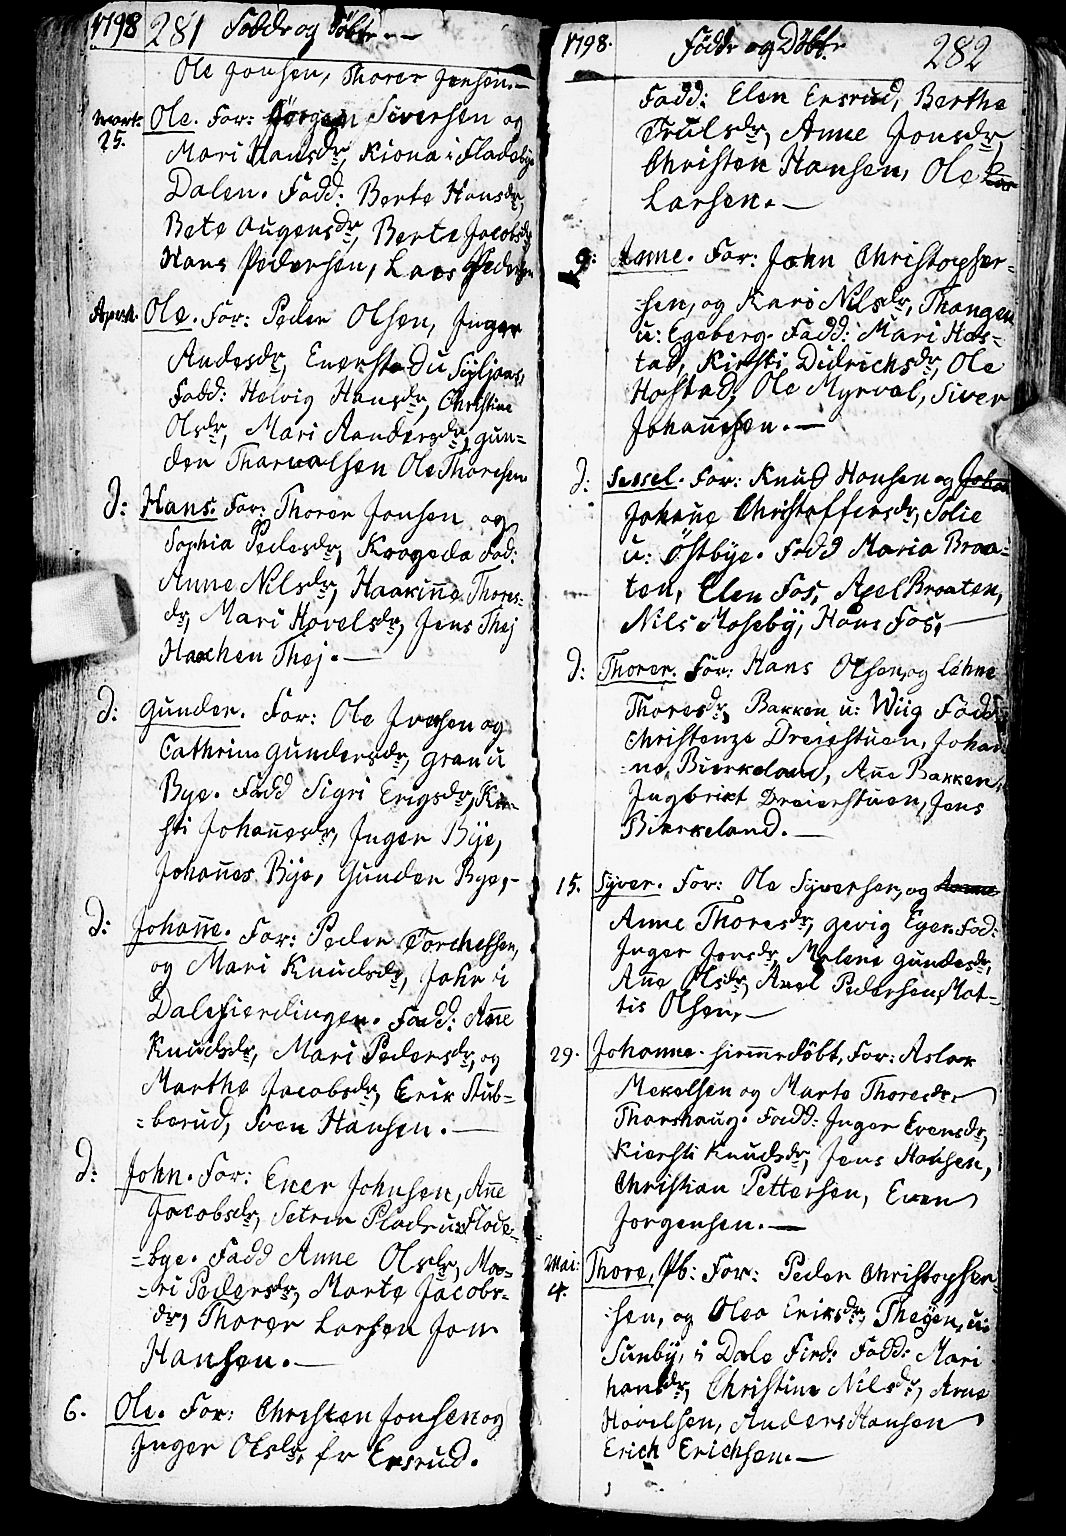 1798 281 Födde og Döbte.—
Ole Jonsen, Thorer Jensen.—
Mart: 25. Ole. For: Jörgen Siversen og
Mari Hansdr, Kiona i Fladebye
Dalen. Fadd: Berte Hansdr,
Bete Augensdr, Berte Jacobsdr
Hans Pedersen, Lars Pedersen
April. Ole. For: Peder Olsen, Inger
Andesdr, Enerstedu
Fadd: Helvig Hansdr, Christine
Olsdr, Mari Aandersdr, gun=
der Ole Thoresen
d: Hans. For: Thorer Jonsen og
Sophia Pedesdr, Krogeda Fad:
Anne Nilsdr, Haakinne Thores=
dr, Mari Hovelsdr, Jens Thej
Haachen Thej.—
d: Gunder. For: Ole og
Cathrine gundersdr, gran u
Bye. Fadd Sigri Erigsdr, Kir=
sti Johanesdr, Inger Bije,
Johanes Bije, Gunder Bye,—
d: Johane. For: Peder Torchelsen,
og Mari Knudsdr, John i
Dalefierdingen. Fadd: Anne
Knudsdr, Mari Pedersdr, og
Marthe Jacobsdr, Erik Stub=
=berud, Sven Hansen.—
d: John. For: Ener Johnsen, Ane
Jacobsdr, Setren Pladsu: Flade=
=bye. Fadd Anne Olsdr, Ma=
=ri Pedersdr, Marte Jacobs=
dr, Thorer Larsen Jon
Hansen.—
6. Ole. For: Christen Jonsen og
Inger Olsdr, fr Ersrud.
1798. Födde og Döbte 282
Fadd: Elen Ersrud, Berthe
Trulsdr, Anne Jonsdr,
Christen Hansen, Ole
Larsen.—
9: Anne. For: John Christopher=
=sen, og Kari Nilsdr, Thangen
u: Egeberg. Fadd: Mari Hos=
tad, Kirsti Didrichsdr, Ole
Hofstad, Ole Myrvol, Siver
Johanesen.—
d: Sessel. For: Knud Hansen og Joha
Johane Christoffersdr, Solie
u: Östbye. Fadd Maria Braa=
ten, Elen Fos, Axel Braaten,
Nils Moseby, Hans Fos,—
d: Thorer. For: Hans Olsen, og Lehne
Thoresdr, Bakken u: Wiig Fadd:
Christenze Dreierstuen, Johan
=ne, Bierkeland, Ane Bakken,
Ingbrikt Dreierstuen, Jens
Bierkeland.—
15. Syver. For: Ole Syversen, og Anne
Anne Thoresdr, gevig Eger. Fad:
Inger Jonsdr, Malene Gundesdr,
Ane Olsdr, Axel Pedersen, Mat=
tis Olsen,—
29. Johanne. hiemmedöbt, For: Aslak
Mekelsen og Marte Thoresdr,
Thorshaug. Fadd: Inger Evensdr,
Kiersti Knudsdr, Jens Hansen,
Christian Pettersen, Even
Jorgensen.—
Mai: 4. Thore, Pb: For: Peder Christopher
sen, og Olea Eriksdr, Theyen, u:
Sunby, i Dale Fird: Fadd: Mari
hansdr, Christine Nilsdr, Arne
Hovelsen, Anders Hansen
Erich Erichsen.—